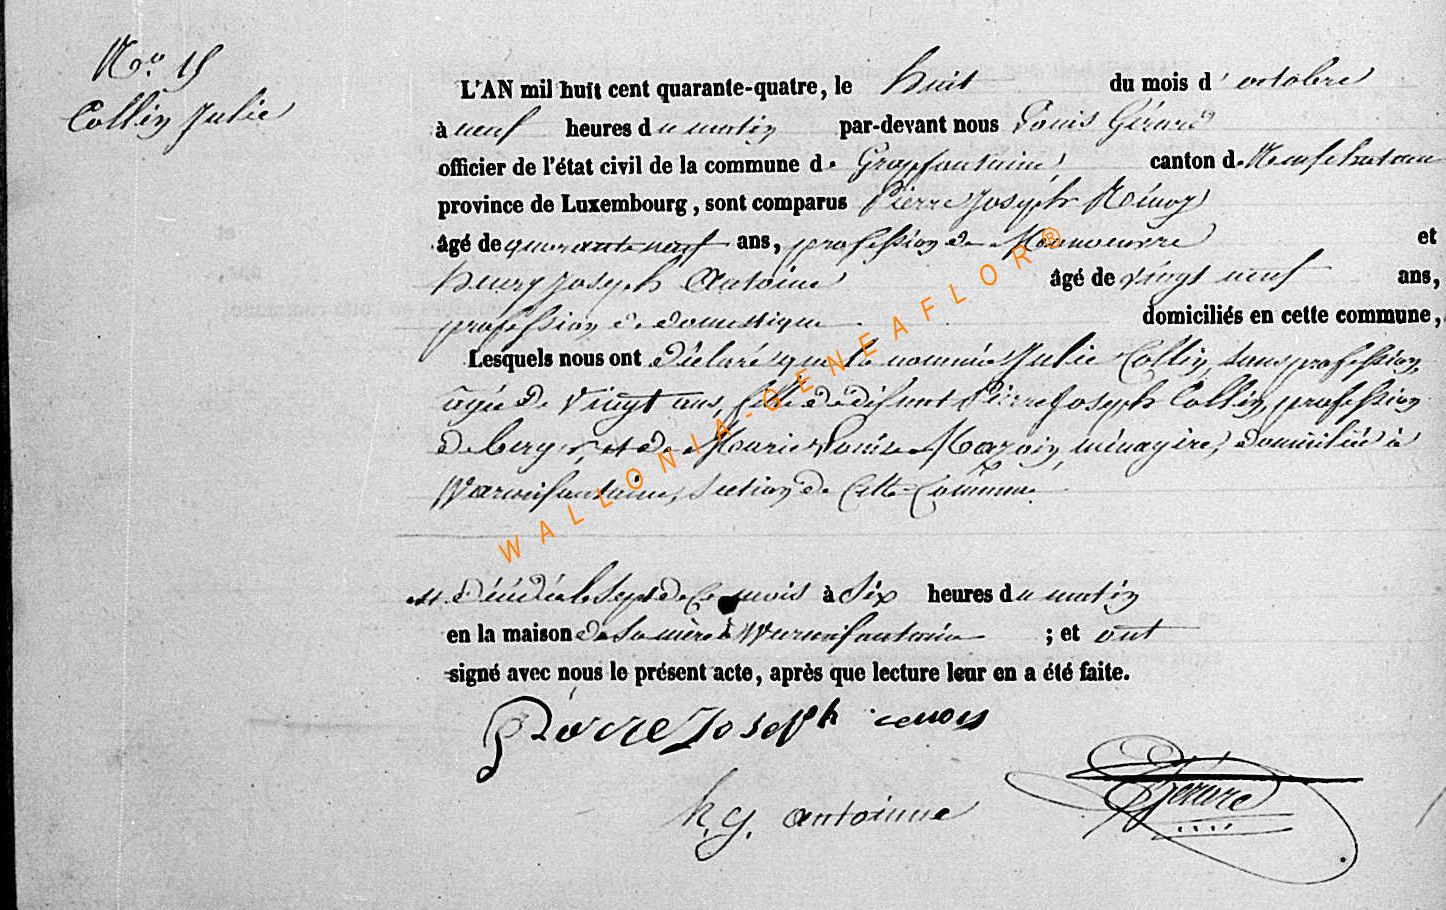 No. 15
Collin Julie
L'AN mil huit cent quarante-quatre, le huit du mois d'octobre
à neuf heures du matin par-devant nous Louis Gérard
officier de l'état civil de la commune de Grapfontaine, canton de Neufchateau
province de Luxembourg, sont comparus Pierre Joseph
âgé de quarante neuf ans, profession de Manoeuvre et
henry Joseph Antoine âgé de vingt neuf ans,
profession de domestique domiciliés en cette commune,
Lesquels nous ont déclaré que la nommée Julie Collin, sans profession,
agée de vingt ans, fille de défunt Pierre Joseph Collin, profession
de berger, et de Marie Louise ménagère, domiciliée à
Warmifontaine, section de Cette Commune.
est décédée le sept de Ce mois à Six heures du matin
en la maison de Sa mère à Warmifontaine ; et ont
signé avec nous le présent acte, après que lecture leur en a été faite.
Pierre Joseph
h. j. antoinne
Gérard
WALLONIA-GENEAFLOR®